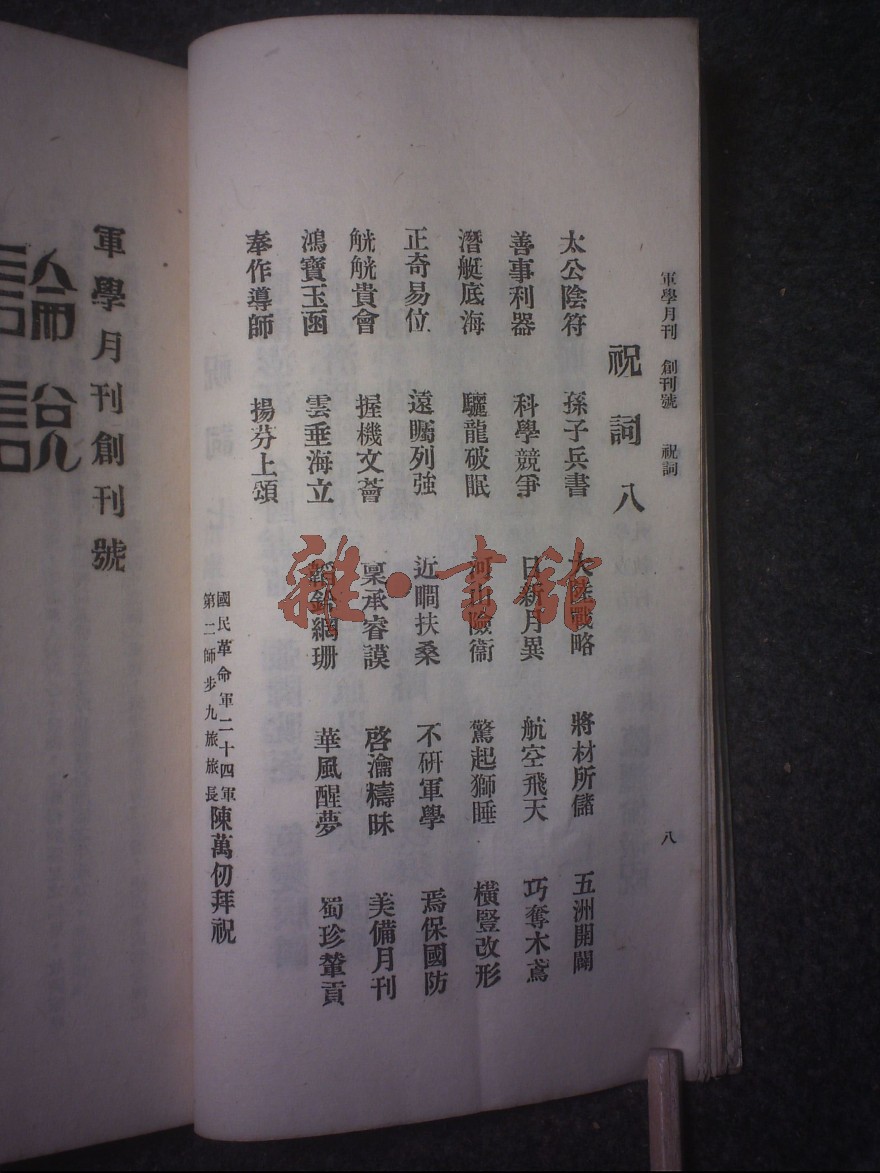 軍學月刊 創刊號 祝詞 八
祝詞八
太公陰符 孫子兵書 大陸戰略 將材所儲 五洲開闢
善事利器 科學競爭 日新月異 航空飛天 巧奪木鳶
潛艇底海 驪龍破眠 河山險衞 驚起獅睡 橫豎改形
正奇易位 遠矚列強 近瞷扶桑 不硏軍學 焉保國防
觥觥貴會 握機文薈 稟承睿謨 啓瀹檮昧 美備月刊
鴻寶玉函 雲垂海立 韜鈐網珊 華風醒夢 蜀珍輦貢
奉作導師 揚芬上頌
國民革命軍二十四軍
第二師步九旅旅長陳萬仞拜祝
軍學月刊創刊號
論說
雜·書館